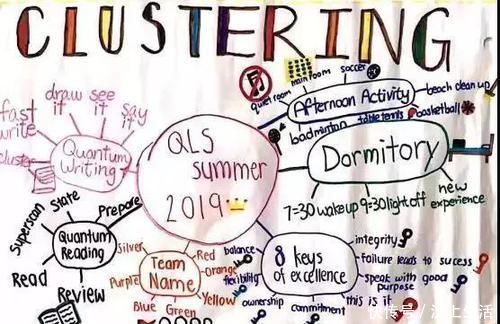 CLUSTERING
QLS
summer
2019
Quantum
Writing
fast
write
draw
it
see
it
say
it
cluster
Afternoon Activity
quiet room
main room
soccer
beach clean up
basketball
table tennis
badminton
Dormitory
7-30 wake up
9-30 light off
new
experience
Quantum
Reading
Superscan
State
Prepare
Read
Review
Team
Name
Silver
Red
Orange
Purple
Yellow
Blue
Green
8 keys
of excellence
balance
flexibility
ownership
commitment
this is it
speak with good
purpose
failure leads to success
integrity
快传号/沪上生活